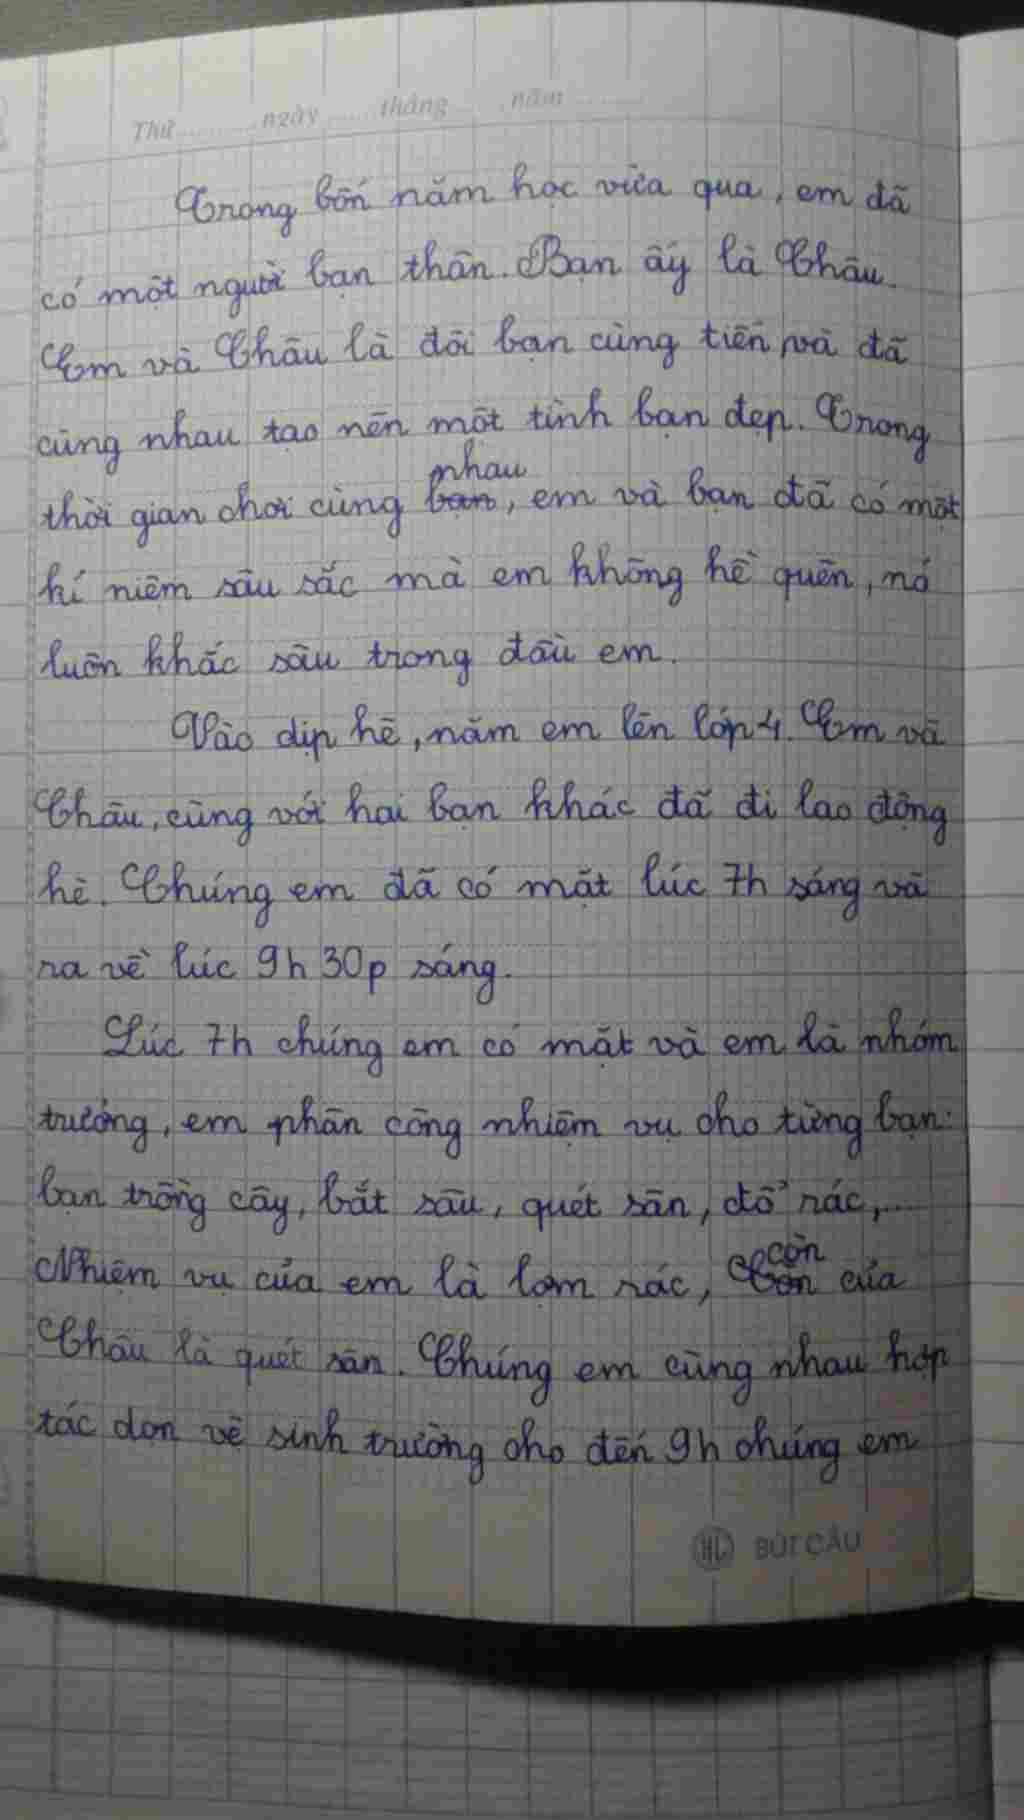 Thứ ......... ngày ...... tháng ...... năm .........
Trong bốn năm học vừa qua, em đã
có một người bạn thân. Bạn ấy là Châu.
Em và Châu là đôi bạn cùng tiến và đã
cùng nhau tạo nên một tình bạn đẹp. Trong
nhau
thời gian chơi cùng bạn, em và bạn đã có một
kỉ niệm sâu sắc mà em không hề quên, nó
luôn khắc sâu trong đầu em.
Vào dịp hè, năm em lên lớp 4. Em và
Châu, cùng với hai bạn khác đã đi lao động
hè. Chúng em đã có mặt lúc 7h sáng và
ra về lúc 9h 30p sáng.
Lúc 7h chúng em có mặt và em là nhóm
trưởng, em phân công nhiệm vụ cho từng bạn:
bạn trồng cây, bắt sâu, quét sân, đổ rác,...
còn
Nhiệm vụ của em là lọm rác, của
Châu là quét sân. Chúng em cùng nhau hợp
tác dọn vệ sinh trường cho đến 9h chúng em
HL BÚT CÂU